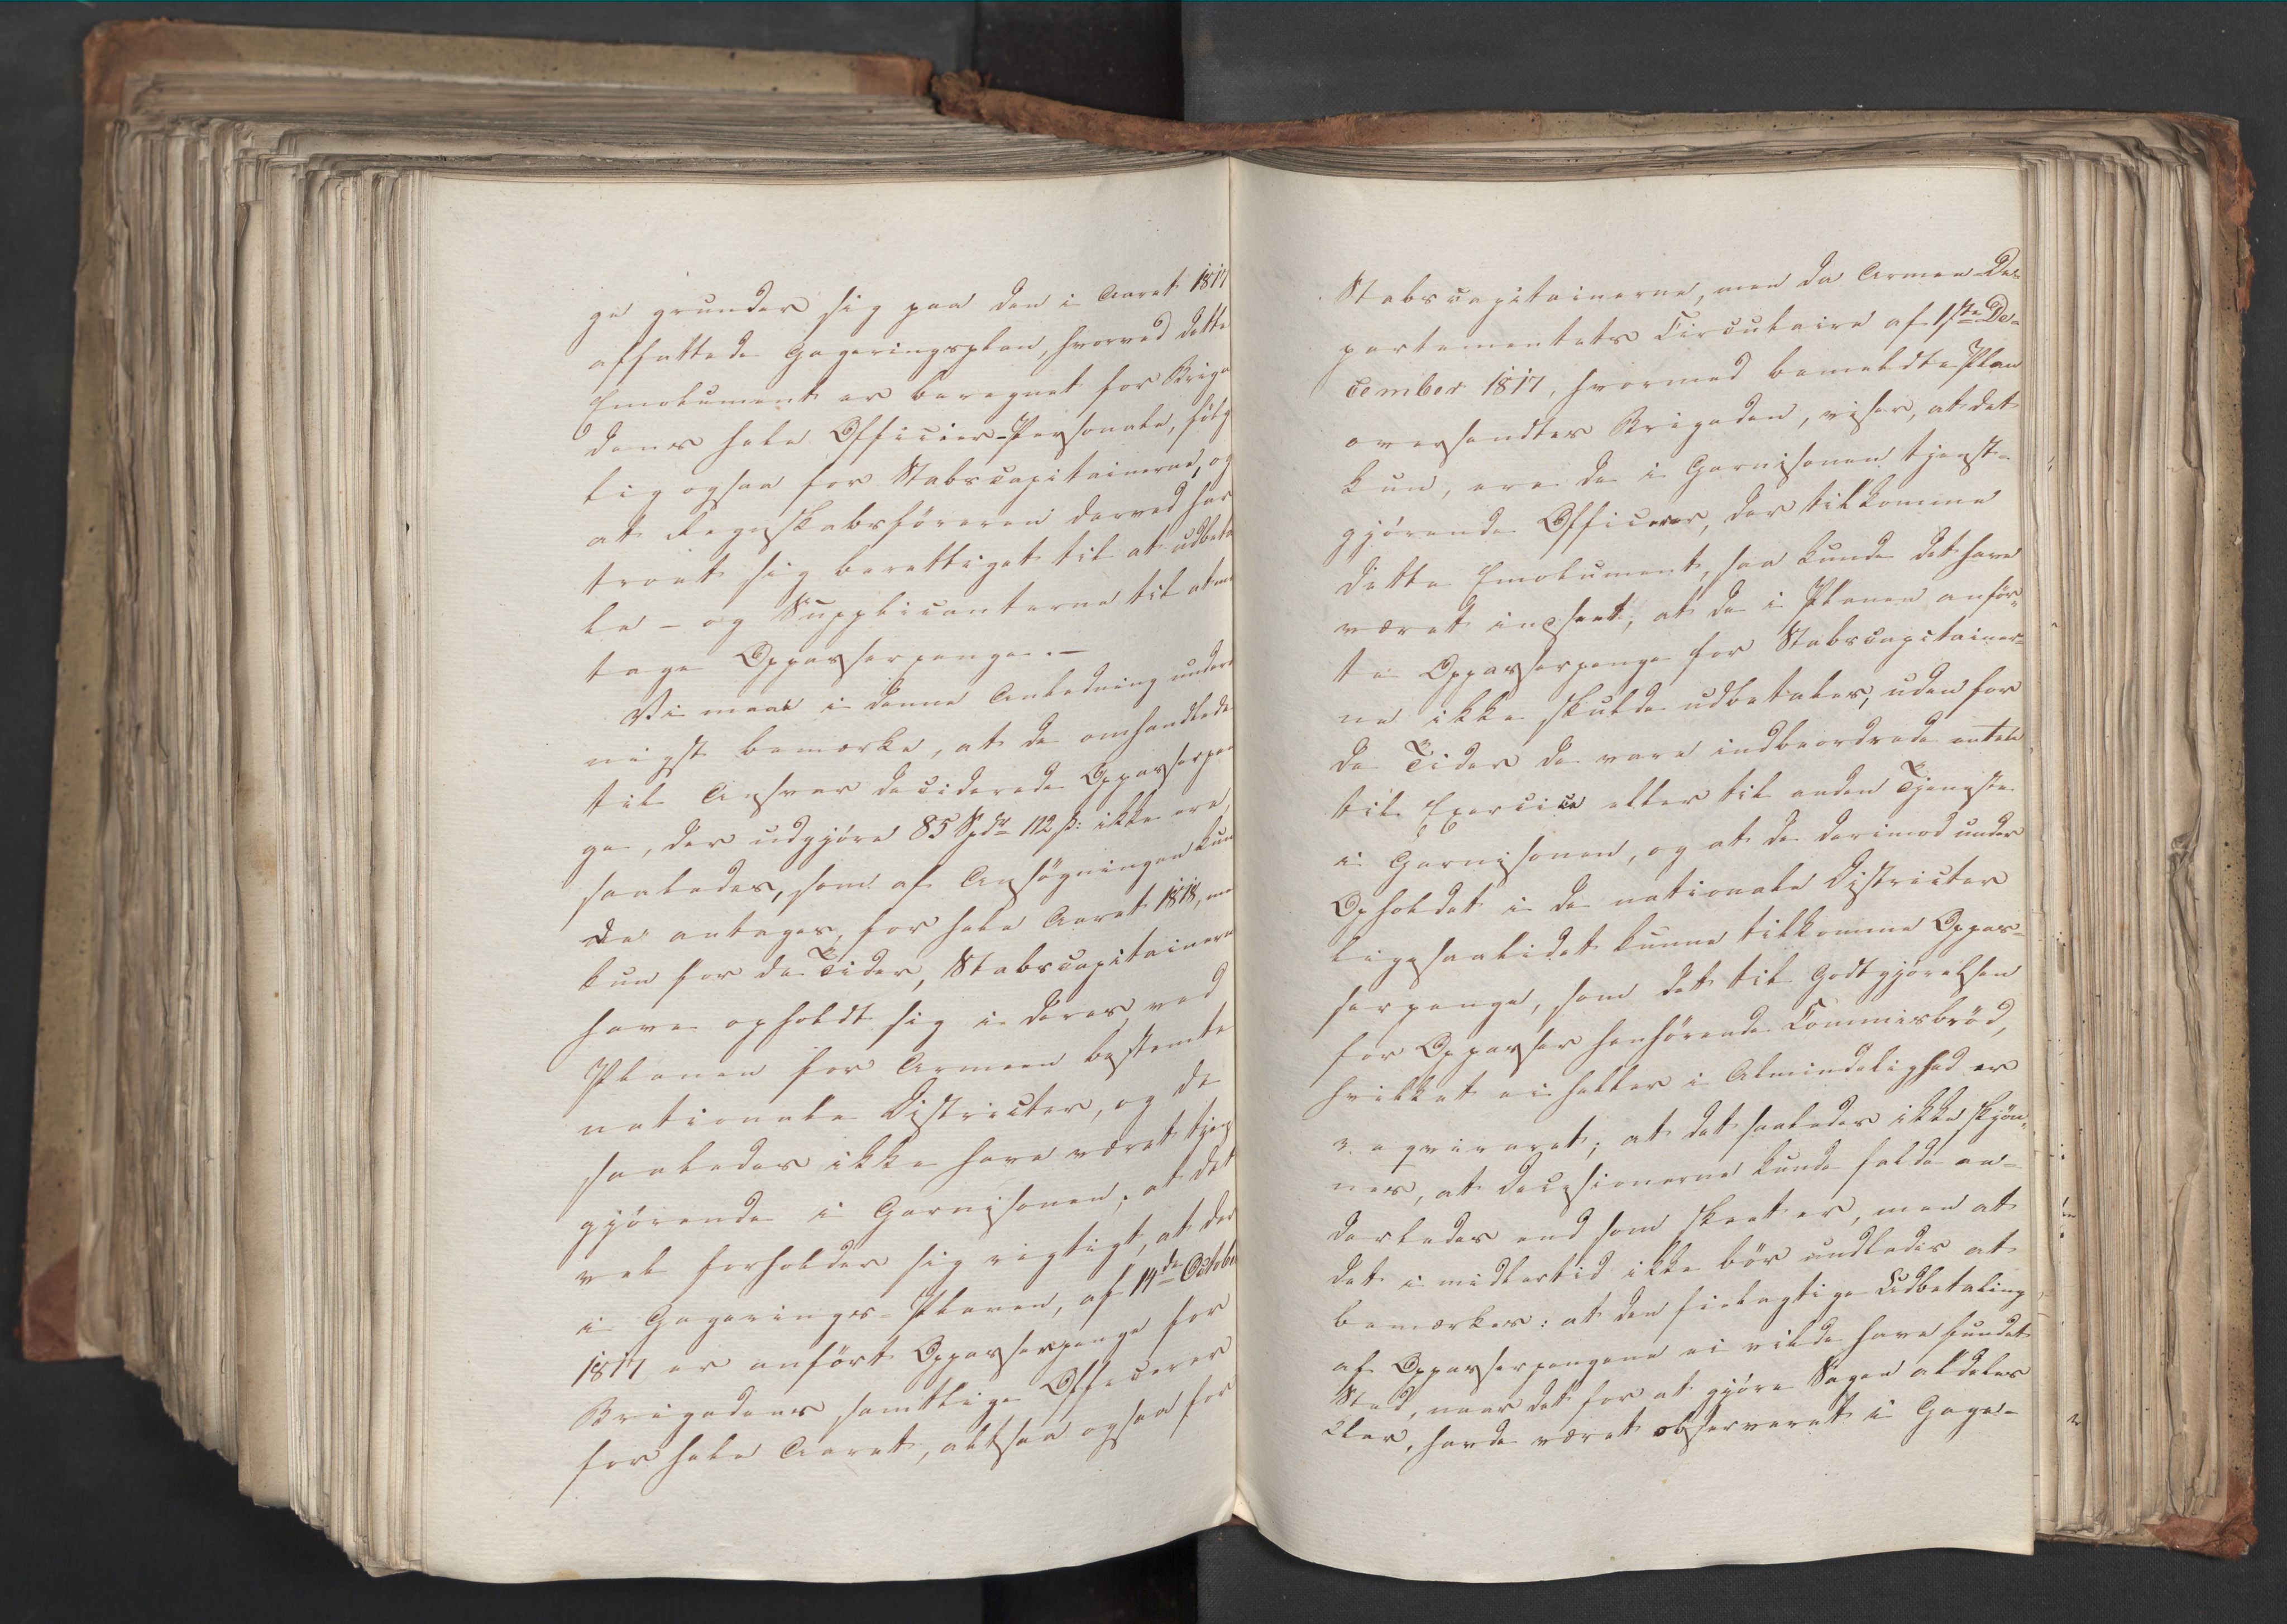 ge grunder sig paa den i Aaret 1817
affattede Gageringsplan, hvorved dette
Emolument er beregnet for Briga
dens hele Officier-Personale, følg
lig ogsaa for Stabscapitainerne, og
at Regnskabsføreren derved har
troet sig berettiget til at udbeta
le - og Supplicanterne til at mo
tage Oppasserpenge. -
Vi maae i denne Anledning under
nigst bemærke, at de omhandlede
til Ansvar deciderede Oppasserpen
ge, der udgjøre 85 Spdr 112 ß: ikke ere,
saaledes, som af Ansøgningen kun
de antages, for hele Aaret 1818, me
kun for de Tider, Stabscapitainern
have opholdt sig i deres ved
Planen for Armeen bestemte
nationale Districter, og de
saaledes ikke have været tjenst
gjørende i Garnisonen; at det
vel forholder sig rigtigt, at der
i Gagerings-Planen, af 14de Octobr
1817 er anført Oppasserpenge for
Brigadens samtlige Officerer
for hele Aaret, altsaa ogsaa for
Stabscapitainerne, men da Armee-De-
partementets Circulaire af 1ste De-
cember 1817, hvormed bemeldte Plan
oversendtes Brigaden, viser, at det
kun, ere de i Garnisonen tjenst-
gjørende Officerer, der tilkomme
dette Emolument, saa kunde det have
været indseet, at de i Planen anför-
te Oppasserpenge for Stabscapitainer-
ne ikke skulde udbetales, uden for
de Tider de vare indbeordrede enten
til Exercice eller til anden Tjeneste
i Garnisonen, og at de derimod under
Opholdet i de nationale Districter
ligesaalidet kunne tilkomme Oppas-
serpenge, som det til Godtgjørelsen
for Oppasser henhørende Commisbrød,
hvilket ei heller i Almindelighed er
reqvireret; at det saaledes ikke skjøn-
nes, at Decisionerne kunde falde an-
derledes end som skeet er, men at
det imidlertid ikke bör undlades at
bemærkes: at den feilagtige Udbetaling
af Oppasserpengene ei vilde have fundet
Sted, naar det for at gjøre Sagen aldeles
klar, havde været observeret i Gage-